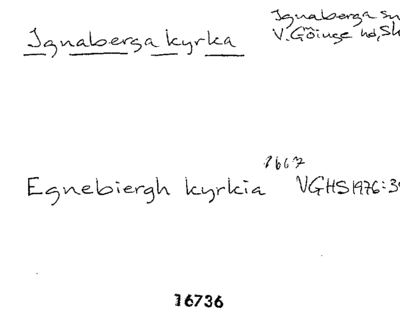 Ignaberga kyrka
Ignaberga sn
V. Göinge hd, Sk
1667
Egnebiergh kyrkia VGHS 1976:3
16736